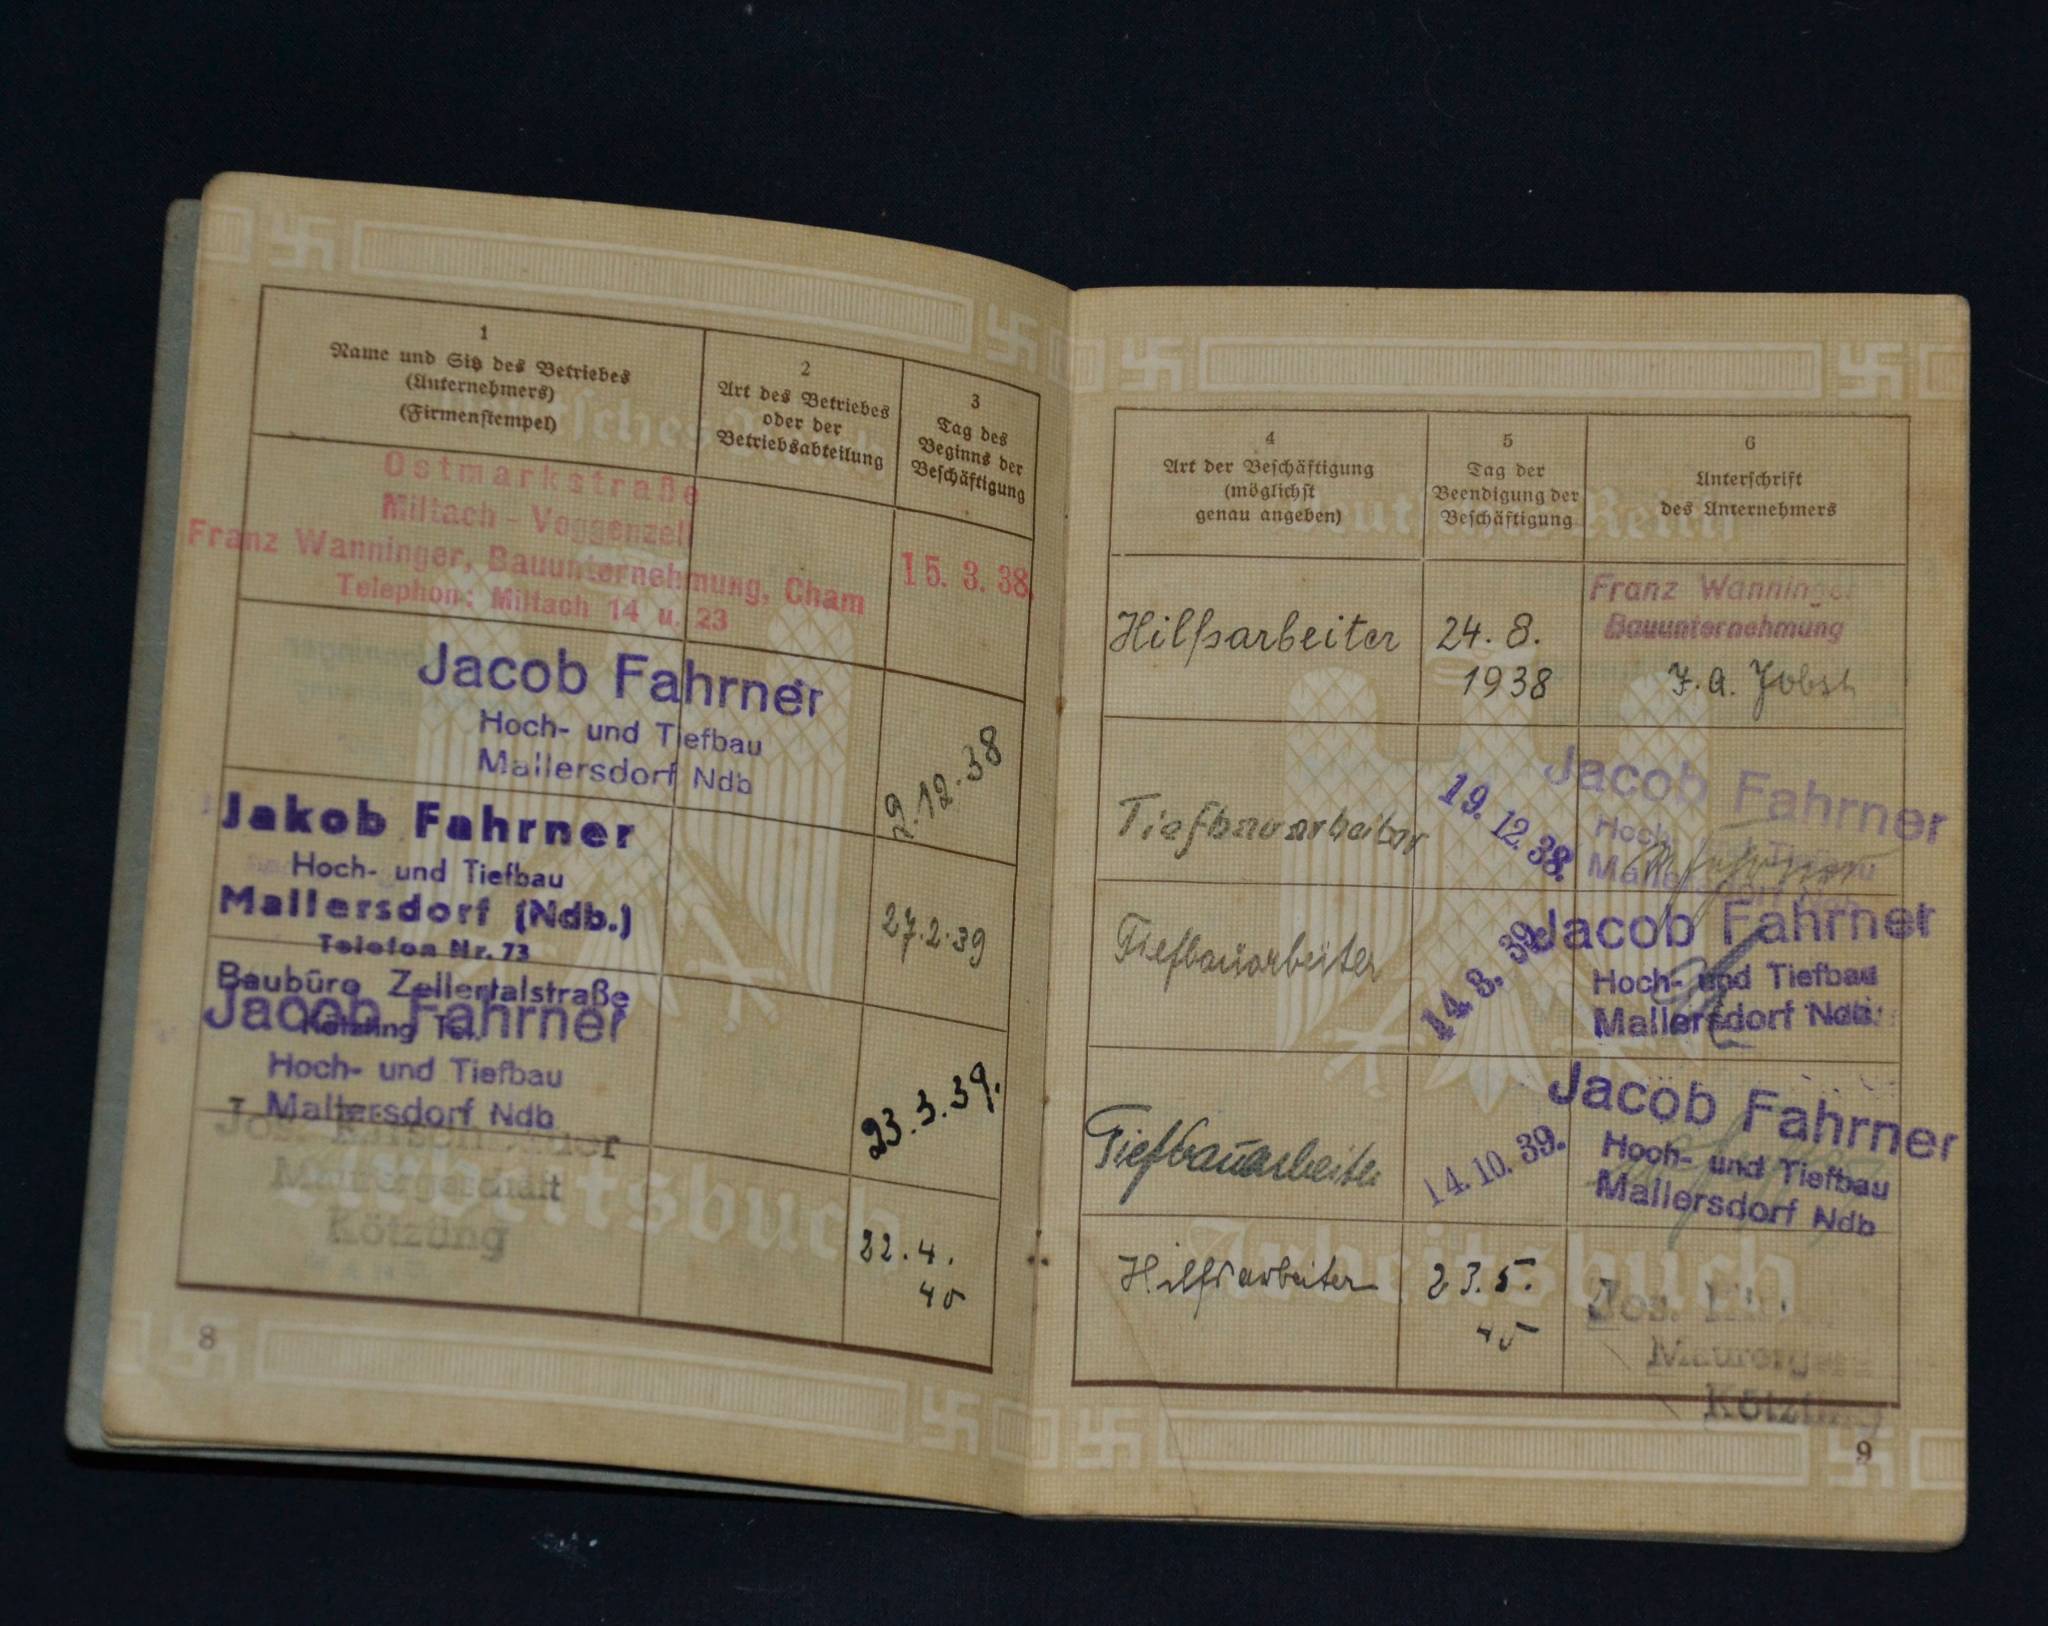 1
Name und Sitz des Betriebes
(Unternehmers)
(Firmenstempel)
2
Art des Betriebes
oder der
Betriebsabteilung
3
Tag des
Beginns der
Beschäftigung
Ostmarkstraße
Miltach - Voggenzell
Franz Wanninger, Bauunternehmung, Cham
Telephon: Miltach 14 u. 23
15. 3. 38.
Jacob Fahrner
Hoch- und Tiefbau
Mallersdorf Ndb
2.12.38
Jakob Fahrner
Hoch- und Tiefbau
Mallersdorf (Ndb.)
Telefon Nr. 73
Baubüro Zellertalstraße
Kötzting Tel.
27.2.39
Jacob Fahrner
Hoch- und Tiefbau
Mallersdorf Ndb
23.3.39.
Jos.
Maurergeschäft
Kötzting
22.4.
40
Arbeitsbuch
8
4
Art der Beschäftigung
(möglichst
genau angeben)
5
Tag der
Beendigung der
Beschäftigung
6
Unterschrift
des Unternehmers
Deutsches Reich
Hilfsarbeiter
24. 8.
1938
Franz Wanninger
Bauunternehmung
J. A. Jobst
Tiefbauarbeiter
19. 12. 38.
Jacob Fahrner
Hoch- und Tiefbau
Mallersdorf Ndb
Tiefbauarbeiter
14. 8. 39.
Jacob Fahrner
Hoch- und Tiefbau
Mallersdorf Ndb.
Tiefbauarbeiter
14. 10. 39.
Jacob Fahrner
Hoch- und Tiefbau
Mallersdorf Ndb
Hilfsarbeiter
23.5.
40
Jos.
Kötzting
Arbeitsbuch
9